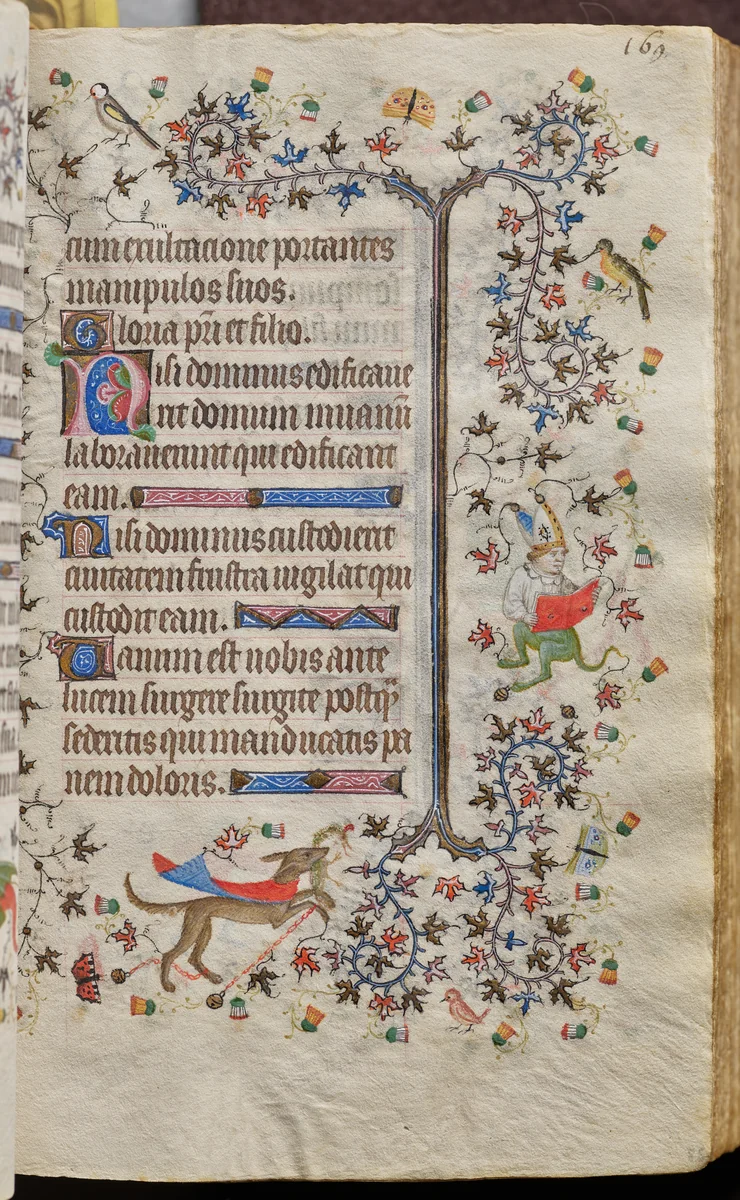 169
cum exultacione portantes
manipulos suos.
Gloria pr̄i et filio.
Nisi dominus edificaue
rit domum in uanū
laborauerunt qui edificant
eam.
Nisi dominus custodierit
ciuitatem frustra uigilat qui
custodit eam.
Uanum est uobis ante
lucem surgere surgite postq̄
sederitis qui manducatis pa
nem doloris.